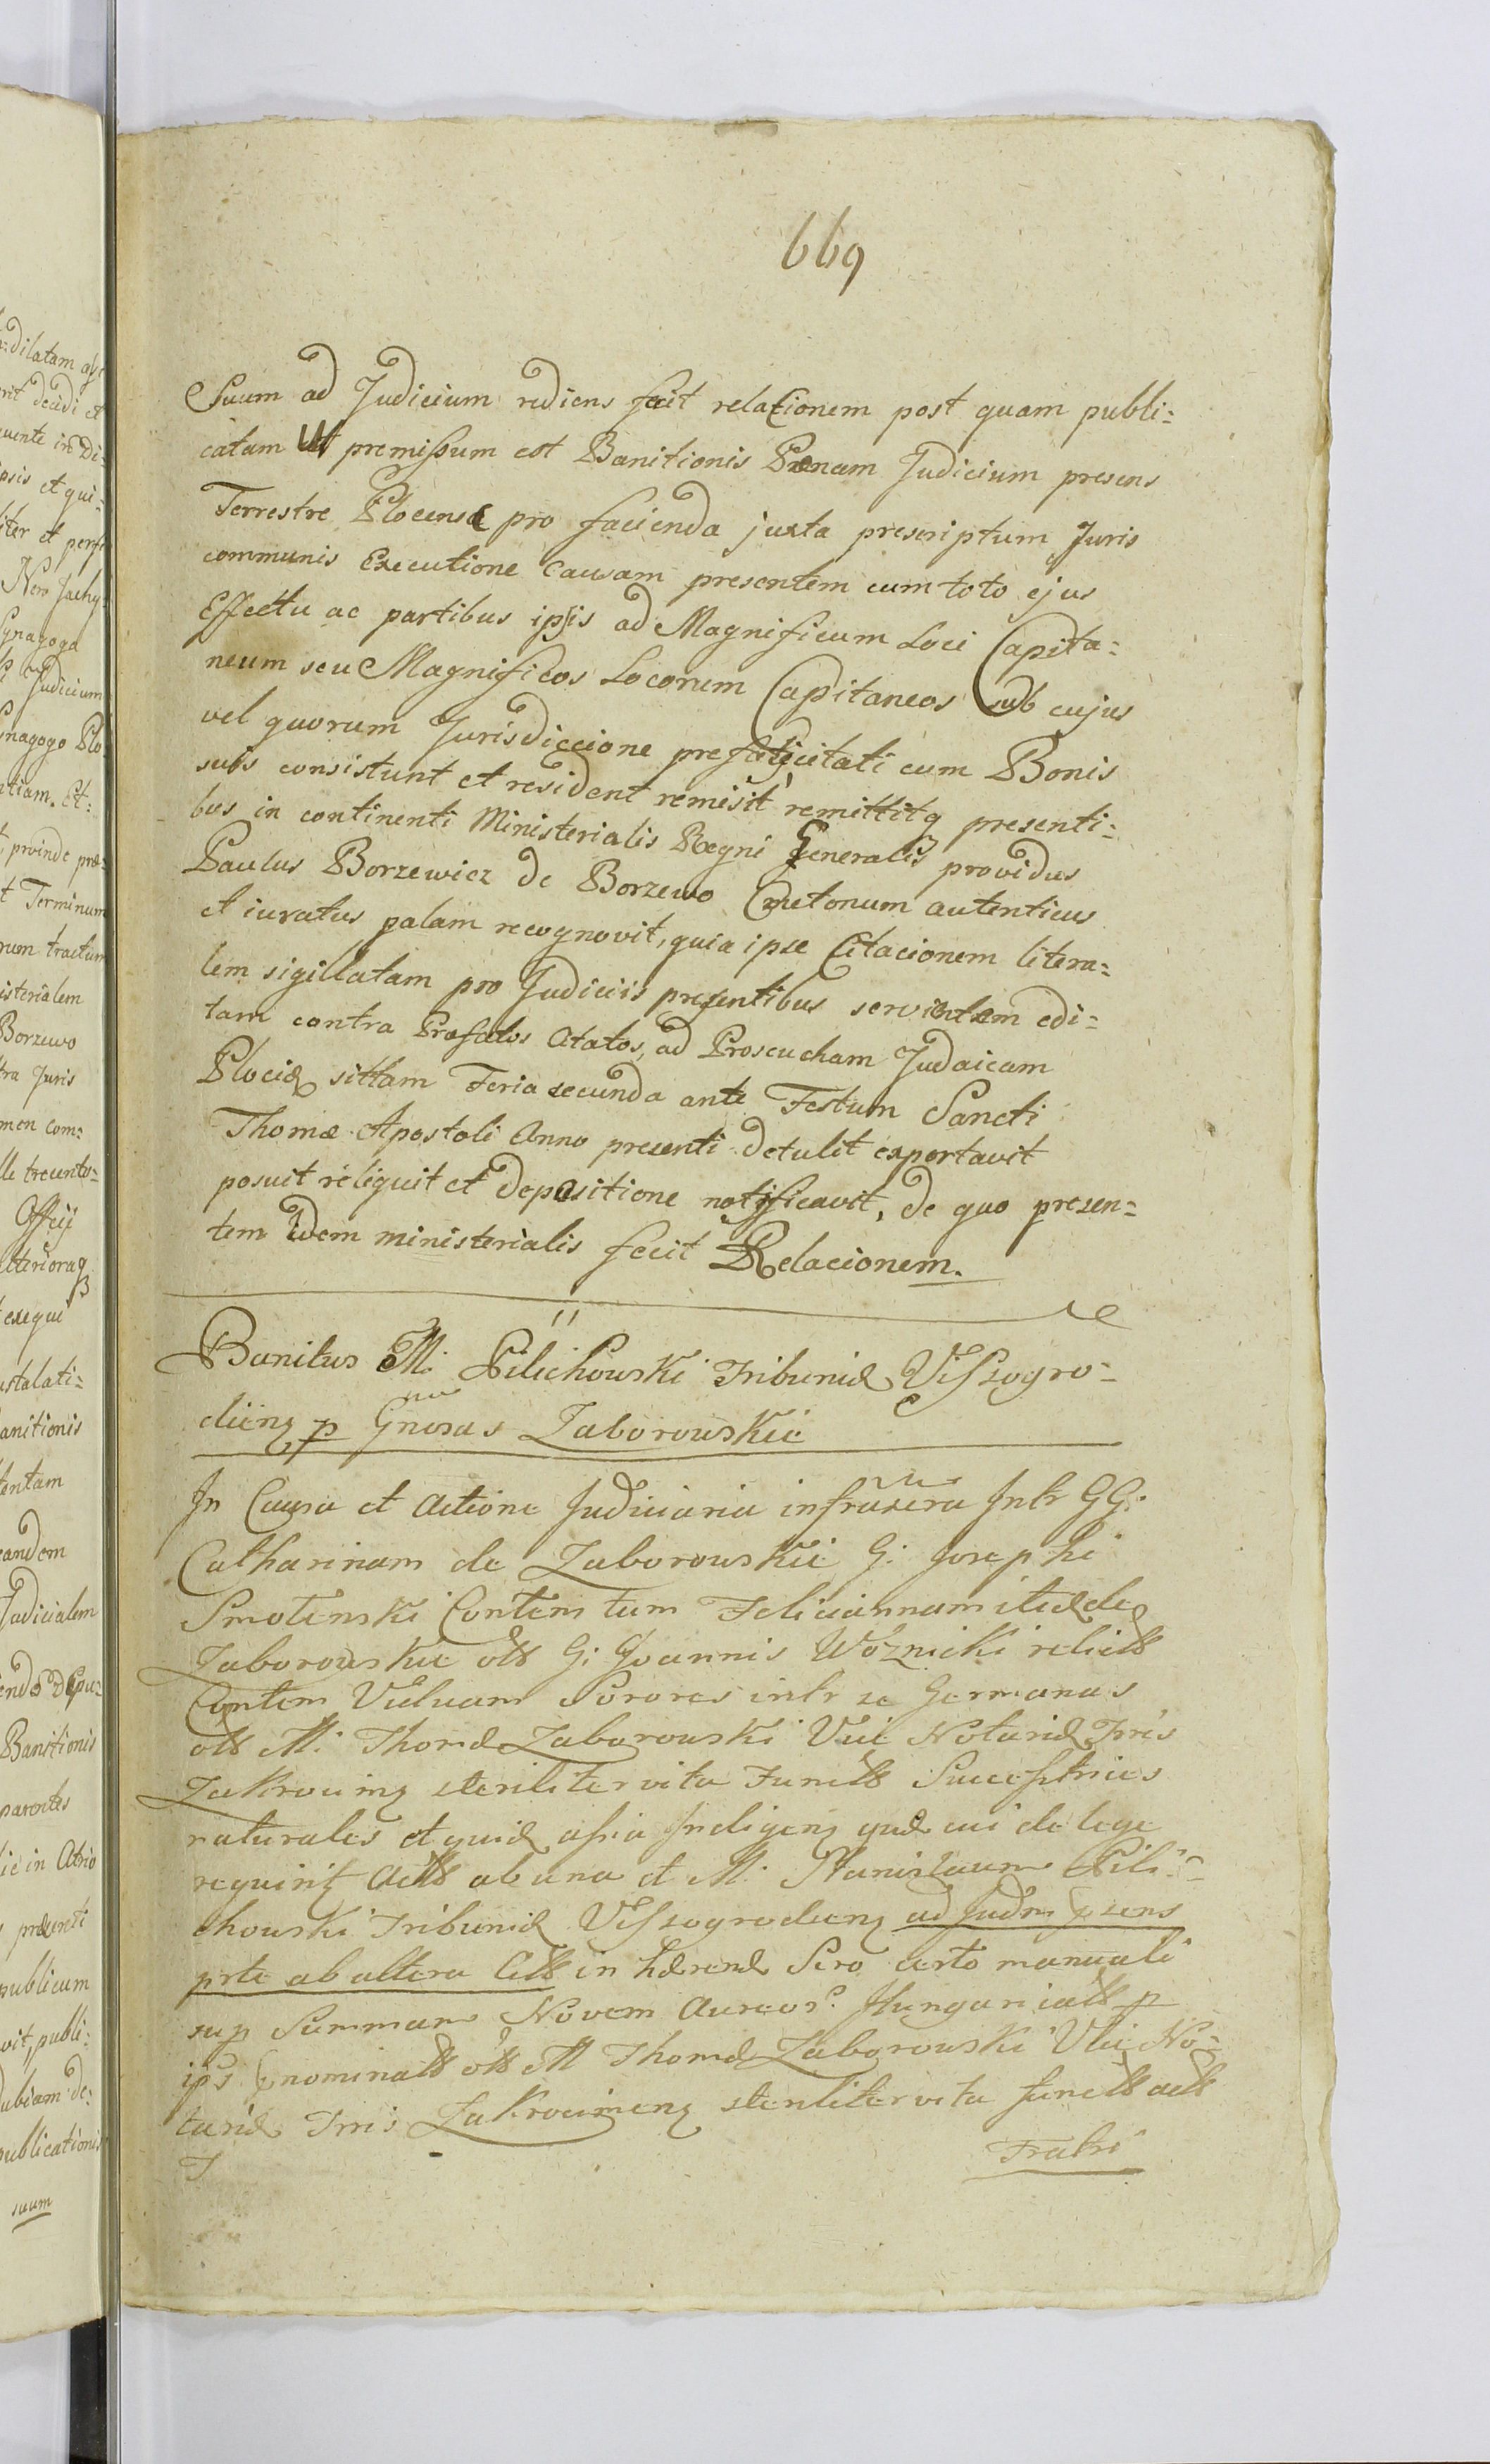 669
Suum ad Judicium rediens fecit relacionem post quam publi=
catam Ut premissum est Banitionis Pænam Judicium presens
Terrestre Plocense pro facienda juxta prescriptum Juris
communis Executione Causam presentem cum toto ejus
Effectu ac partibus ipsis ad Magnificum Loci Capita=
neum seu Magnificos Locorum Capitaneos sub cujus
vel quorum Jurisdiccione prefati citati cum Bonis
suis consistunt et resident remisit remittitq presenti=
bus in continenti Ministerialis Regni Generalis providus
Paulus Borzewicz de Borzewo Cmetonum autenticus
et iuratus palam recognovit, quia ipse Citacionem litera=
lem sigillatam pro Judiciis presentibus servientem edi=
tam contra Præfatos Ctatos, ad Proseucham Judaicam
Plociæ sittam Feria secunda ante Festum Sancti
Thomæ Apostoli Anno presenti detulit exportavit
posuit reliquit et depositione notificavit, de quo presen=
tem idem ministerialis fecit Relacionem.
Banitus M. Pilichowski Tribunid Viszogro=
dieng p Gnosas Zaborowskie
In Causa et Actione Judiciaria infrascra Intr GG:
Catharinam de Zaborowskie G: Josephi
Smolenski Contem tum Feliciannam itid de
Zaborowskie olb G: Joannis Woznicki relictb
Contem Viduam Sorores intr se Germanas
olb M. Thomæ Zaborowski Notarid Trris
Zakrocimg steriliter vita Functb Successtrices
naturales et quid Indigeng qud cui de lege
requirit Actb ab una et M. Stanislaum Pili=
chowski Tribunid Viszogrodieng ad Judm psens
prte ab altera Cttb in hærend Sero certo manuali
sup Summam Novem Aureor. Hungaricalb p
ips nominatb olb M Thomæ Zaborowski No=
tarid Trris Zakrocimeng steriliter vita functb actb
Fratri